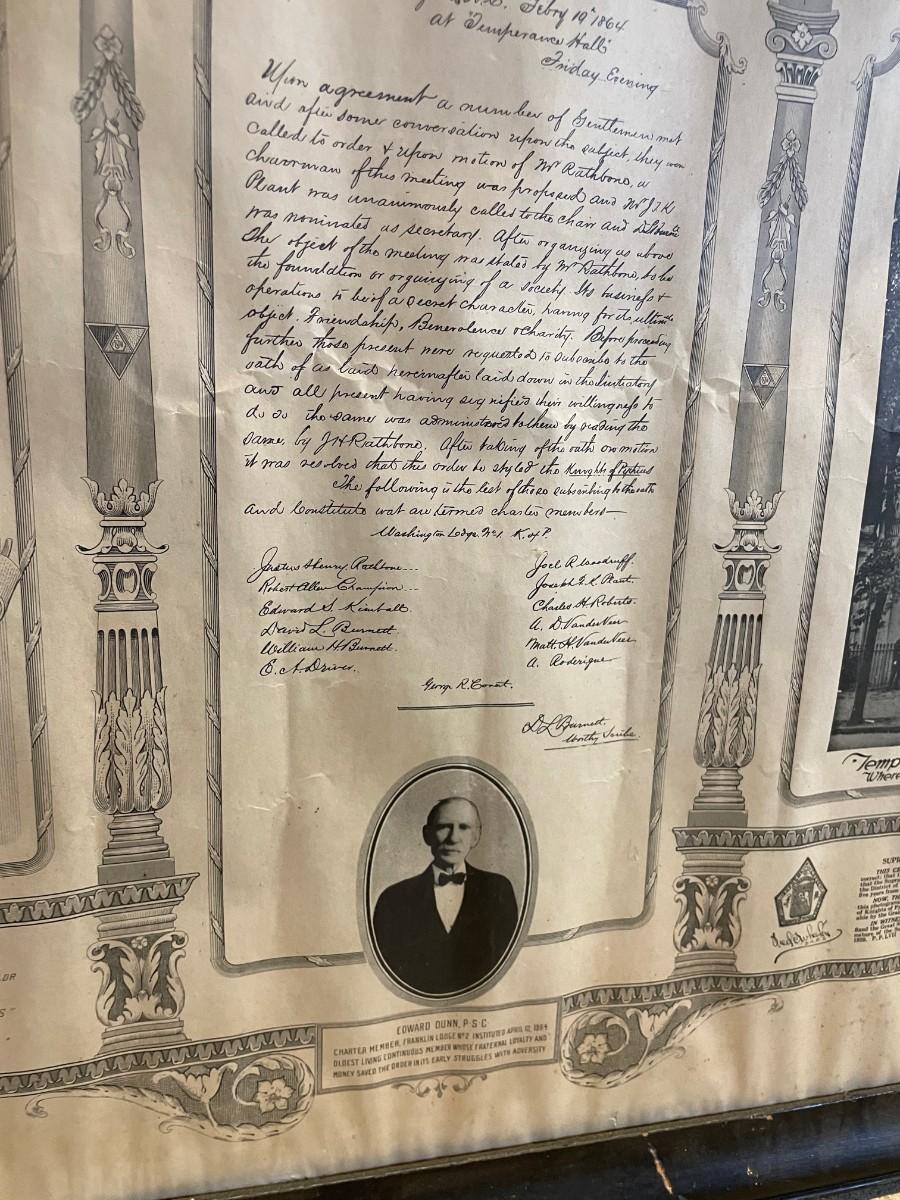 Febry 19" 1864
at "Temperance Hall"
Friday Evening
Upon agreement a number of Gentlemen met
and after some conversation upon the subject, they were
called to order & upon motion of Mr Rathbone, a
chairman of this meeting was proposed and Mr J.I.K
Plant was unanimously called to the chair and
was nominated as secretary. After organizing as above
The object of the meeting was stated by Mr Rathbone, to be
the foundation or organizing of a society. Its business &
operations to be of a secret character, having for its ultimate
object. Friendship, Benevolence & Charity. Before proceeding
further those present were requested to subscribe to the
oath of as laid hereinafter laid down in the
and all present having signified their willingness to
do so the same was administered to them by reading the
same, by J H Rathbone. After taking of the oath on motion
it was resolved that this order be styled the Knights of Pythias
The following is the list of those subscribing to the oath
and Constitute wat are termed charter members—
Washington Lodge No 1. K. of P.
Justus Henry Rathbone...
Robert Allen Champion...
Edward S. Kimball.
David L. Burnett.
William H. Burnett.
E. A. Driver.
Joel R. Woodruff.
Joseph T. K. Plant.
Charles H. Roberts.
A. D. VanderVeer
Matt. H. VanderVeer
A. Roderigue
George R. Conat.
D L Burnett.
Worthy Scribe.
EDWARD DUNN, P·S·C
CHARTER MEMBER, FRANKLIN LODGE Nº2 INSTITUTED APRIL 12, 1864
OLDEST LIVING CONTINUOUS MEMBER WHOSE FRATERNAL LOYALTY AND
MONEY SAVED THE ORDER IN ITS EARLY STRUGGLES WITH ADVERSITY
"Temp
Where
SUPR
THIS CE
that the Supre
the District of
five years from
NOW, TH
this photograph
of Knights of P
able by the Gra
IN WITNE